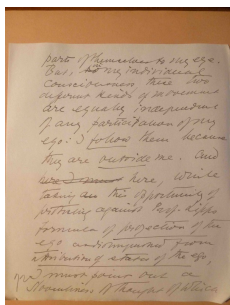 parts of themselves to my ego.
But, to my individual
consciousness these two
different kinds of movement
are equally independent
of any participation of my
ego: I follow them because
they are outside me. And
here, while
taking this opportunity of
protesting against Prof. Lipps
formula of projection of the
ego as distinguished from
attribution of states of the ego,
I must point out a
of thought of which